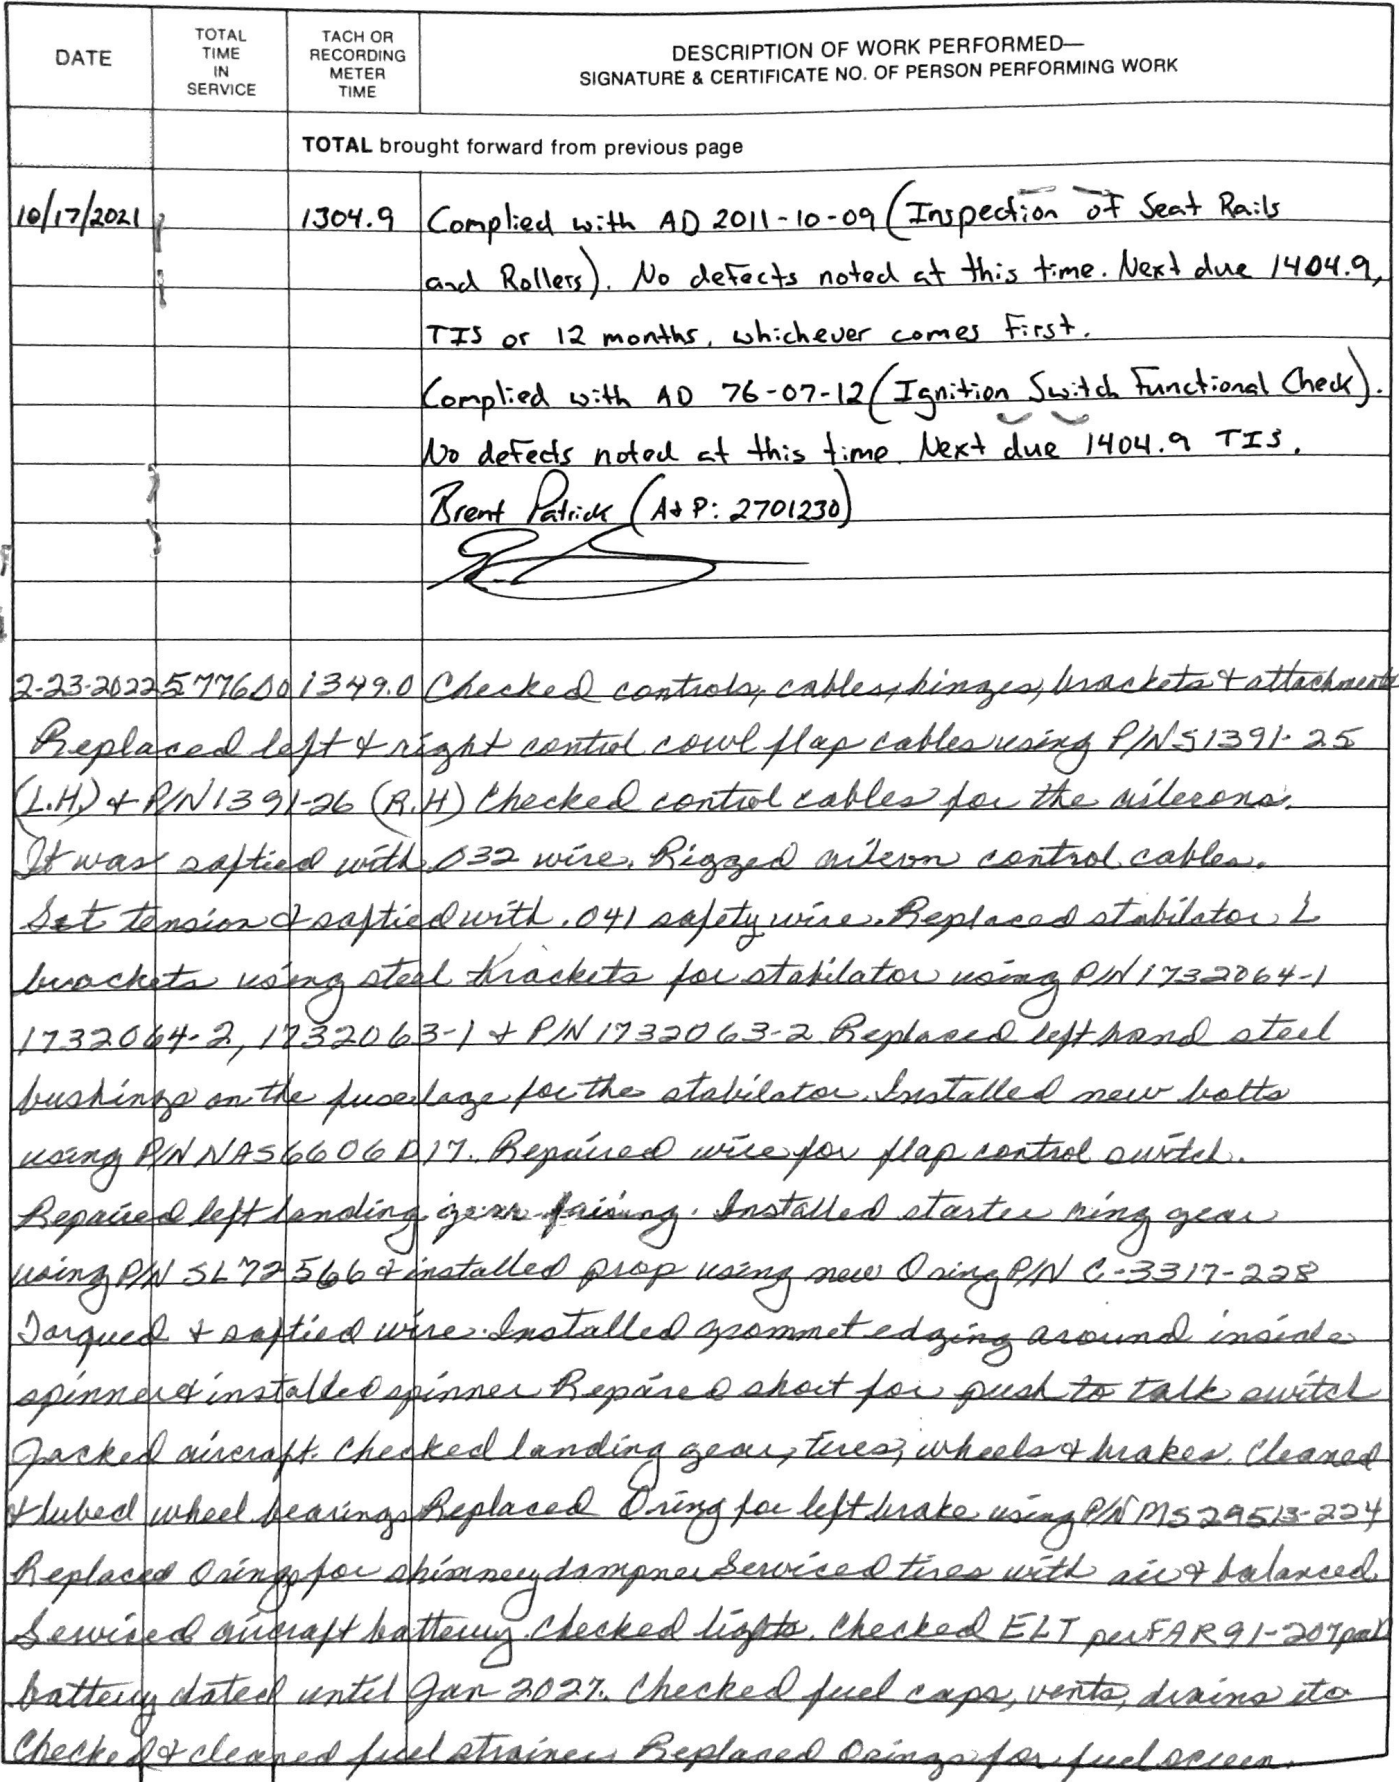 DATE
TOTAL
TIME
IN
SERVICE
TACH OR
RECORDING
METER
TIME
DESCRIPTION OF WORK PERFORMED—
SIGNATURE & CERTIFICATE NO. OF PERSON PERFORMING WORK
TOTAL brought forward from previous page
10/17/2021 1304.9 Complied with AD 2011-10-09 (Inspection of Seat Rails
and Rollers). No defects noted at this time. Next due 1404.9,
TIS or 12 months, whichever comes first.
Complied with AD 76-07-12 (Ignition Switch Functional Check).
No defects noted at this time. Next due 1404.9 TIS.
Brent Patrick (A&P: 2701230)
2-23-2022 1349.0 Checked controls, cables, hinges, brackets & attachments
Replaced left & right control cowl flap cables using P/N S1391-25
(L.H.) & P/N 1391-26 (R.H) Checked control cables for the ailerons.
It was saftied with .032 wire. Rigged aileron control cables.
Set tension & saftied with .041 safety wire. Replaced stabilator L
brackets using steel brackets for stabilator using P/N 1732064-1
1732064-2, 1732063-1 & P/N 1732063-2 Replaced left hand steel
bushings on the fuselage for the stabilator. Installed new bolts
using P/N NAS6606D17. Repaired wire for flap control switch.
Repaired left landing gear fairing. Installed starter ring gear
using P/N SL72566 & installed prop using new O ring P/N C-3317-228
Torqued & saftied wire. Installed grommet edging around inside
spinner & installed spinner Repaired short for push to talk switch
Jacked aircraft. Checked landing gear, tires, wheels & brakes. Cleaned
& lubed wheel bearings Replaced O ring for left brake using P/N MS29513-224
Replaced O rings for shimmey dampner Serviced tires with air & balanced.
Serviced aircraft battery. Checked lights. Checked ELT per FAR 91-207 par D
battery dated until Jan 2027. Checked fuel caps, vents, drains etc
Checked & cleaned fuel strainer Replaced O rings for fuel screen.